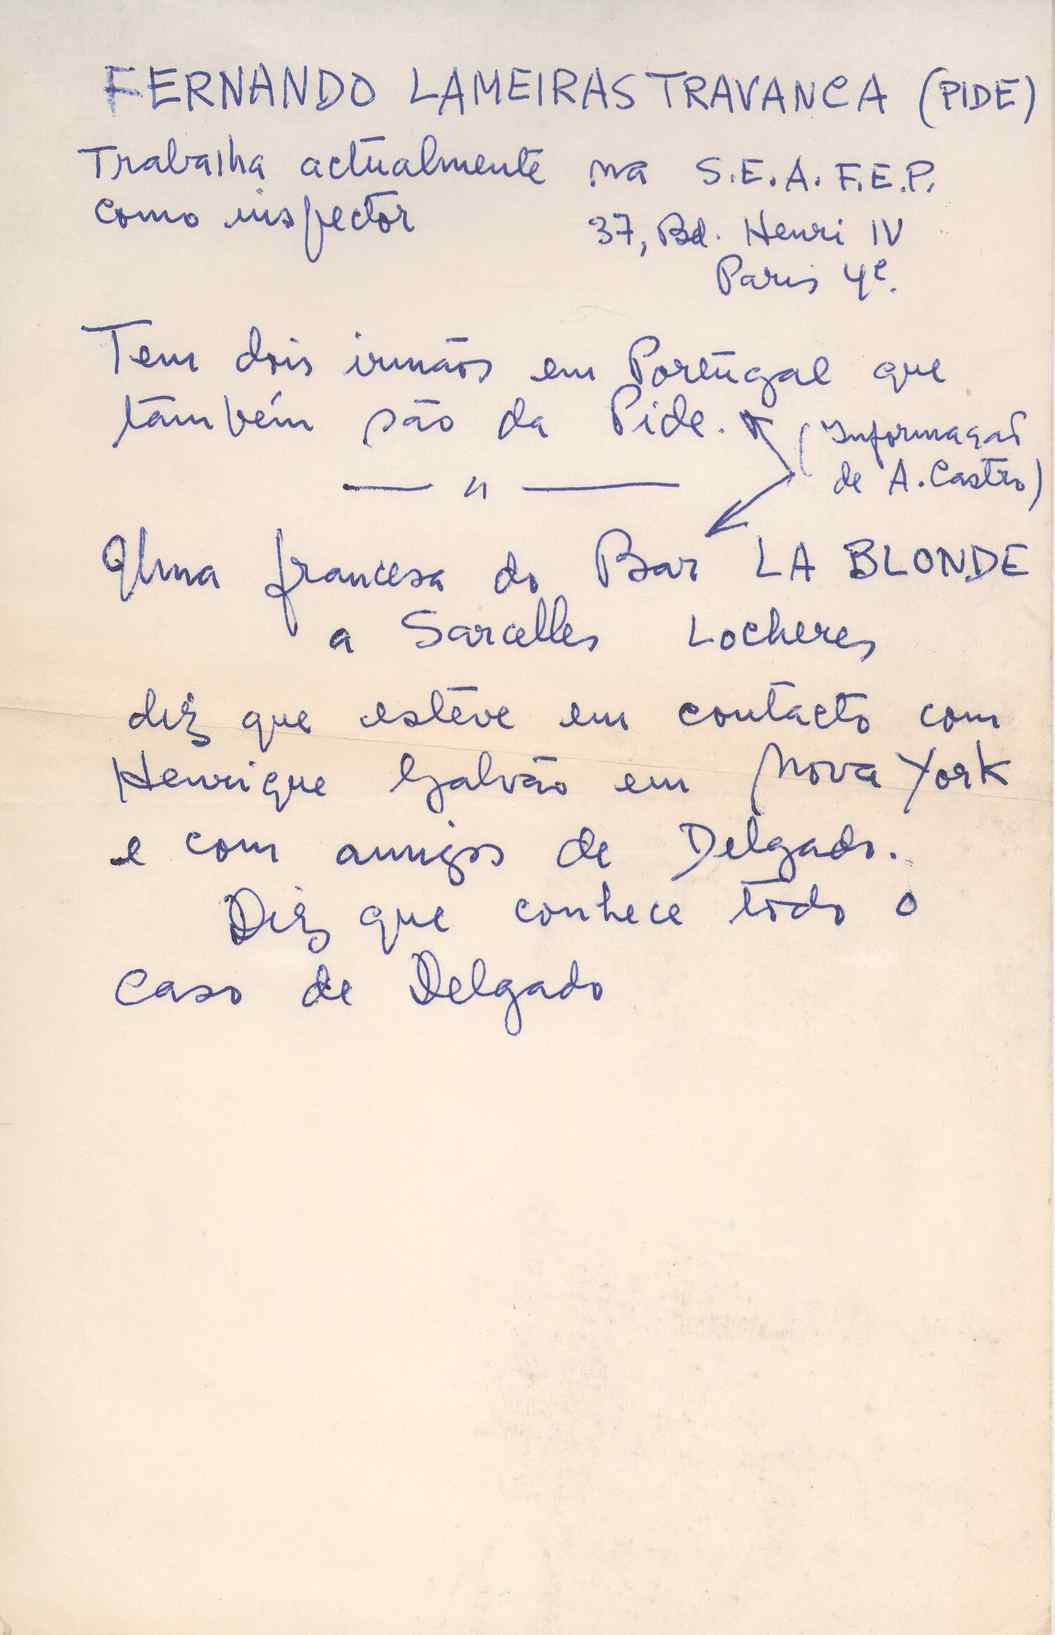 FERNANDO LAMEIRAS TRAVANCA (PIDE)
Trabalha actualmente na S.E.A.F.E.P.
como inspector 37, Bd. Henri IV
Paris 4e.
Tem dois irmãos em Portugal que
também são da Pide.
(Informação
de A. Castro)
— " —
Uma francesa do Bar LA BLONDE
a Sarcelles Locheres
diz que estêve em contacto com
Henrique Galvão em Nova York
e com amigos de Delgado.
Diz que conhece todo o
caso de Delgado